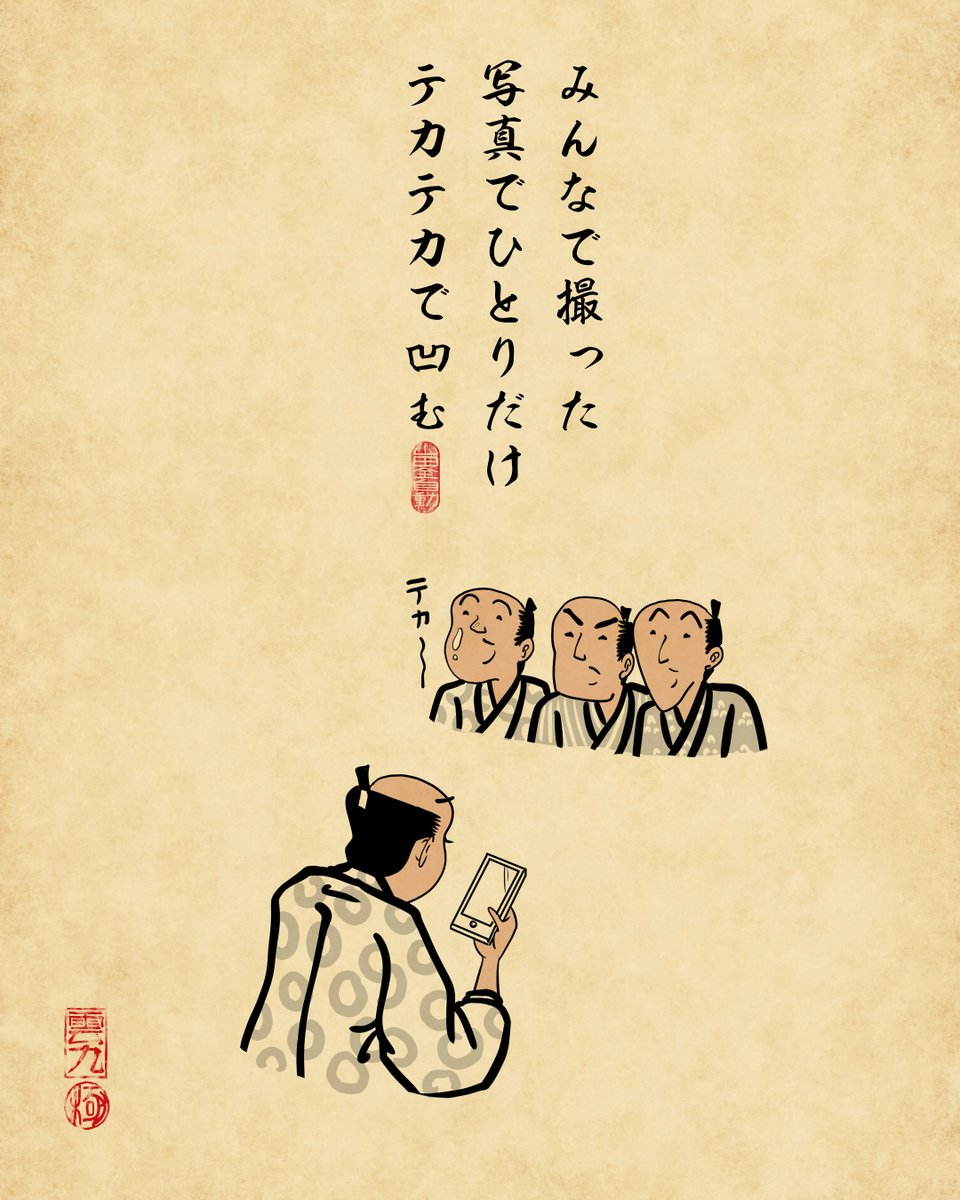 みんなで撮った
写真でひとりだけ
テカテカで凹む
テカ〜